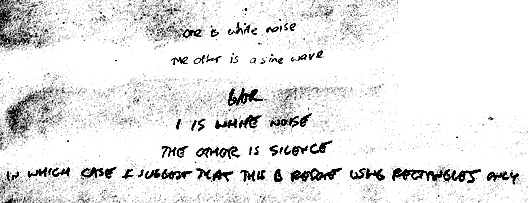 one is white noise
The other is a sine wave
&/OR
1 IS WHITE NOISE
THE OTHER IS SILENCE
IN WHICH CASE I SUGGEST THAT THIS B REDONE USING RECTANGLES ONLY